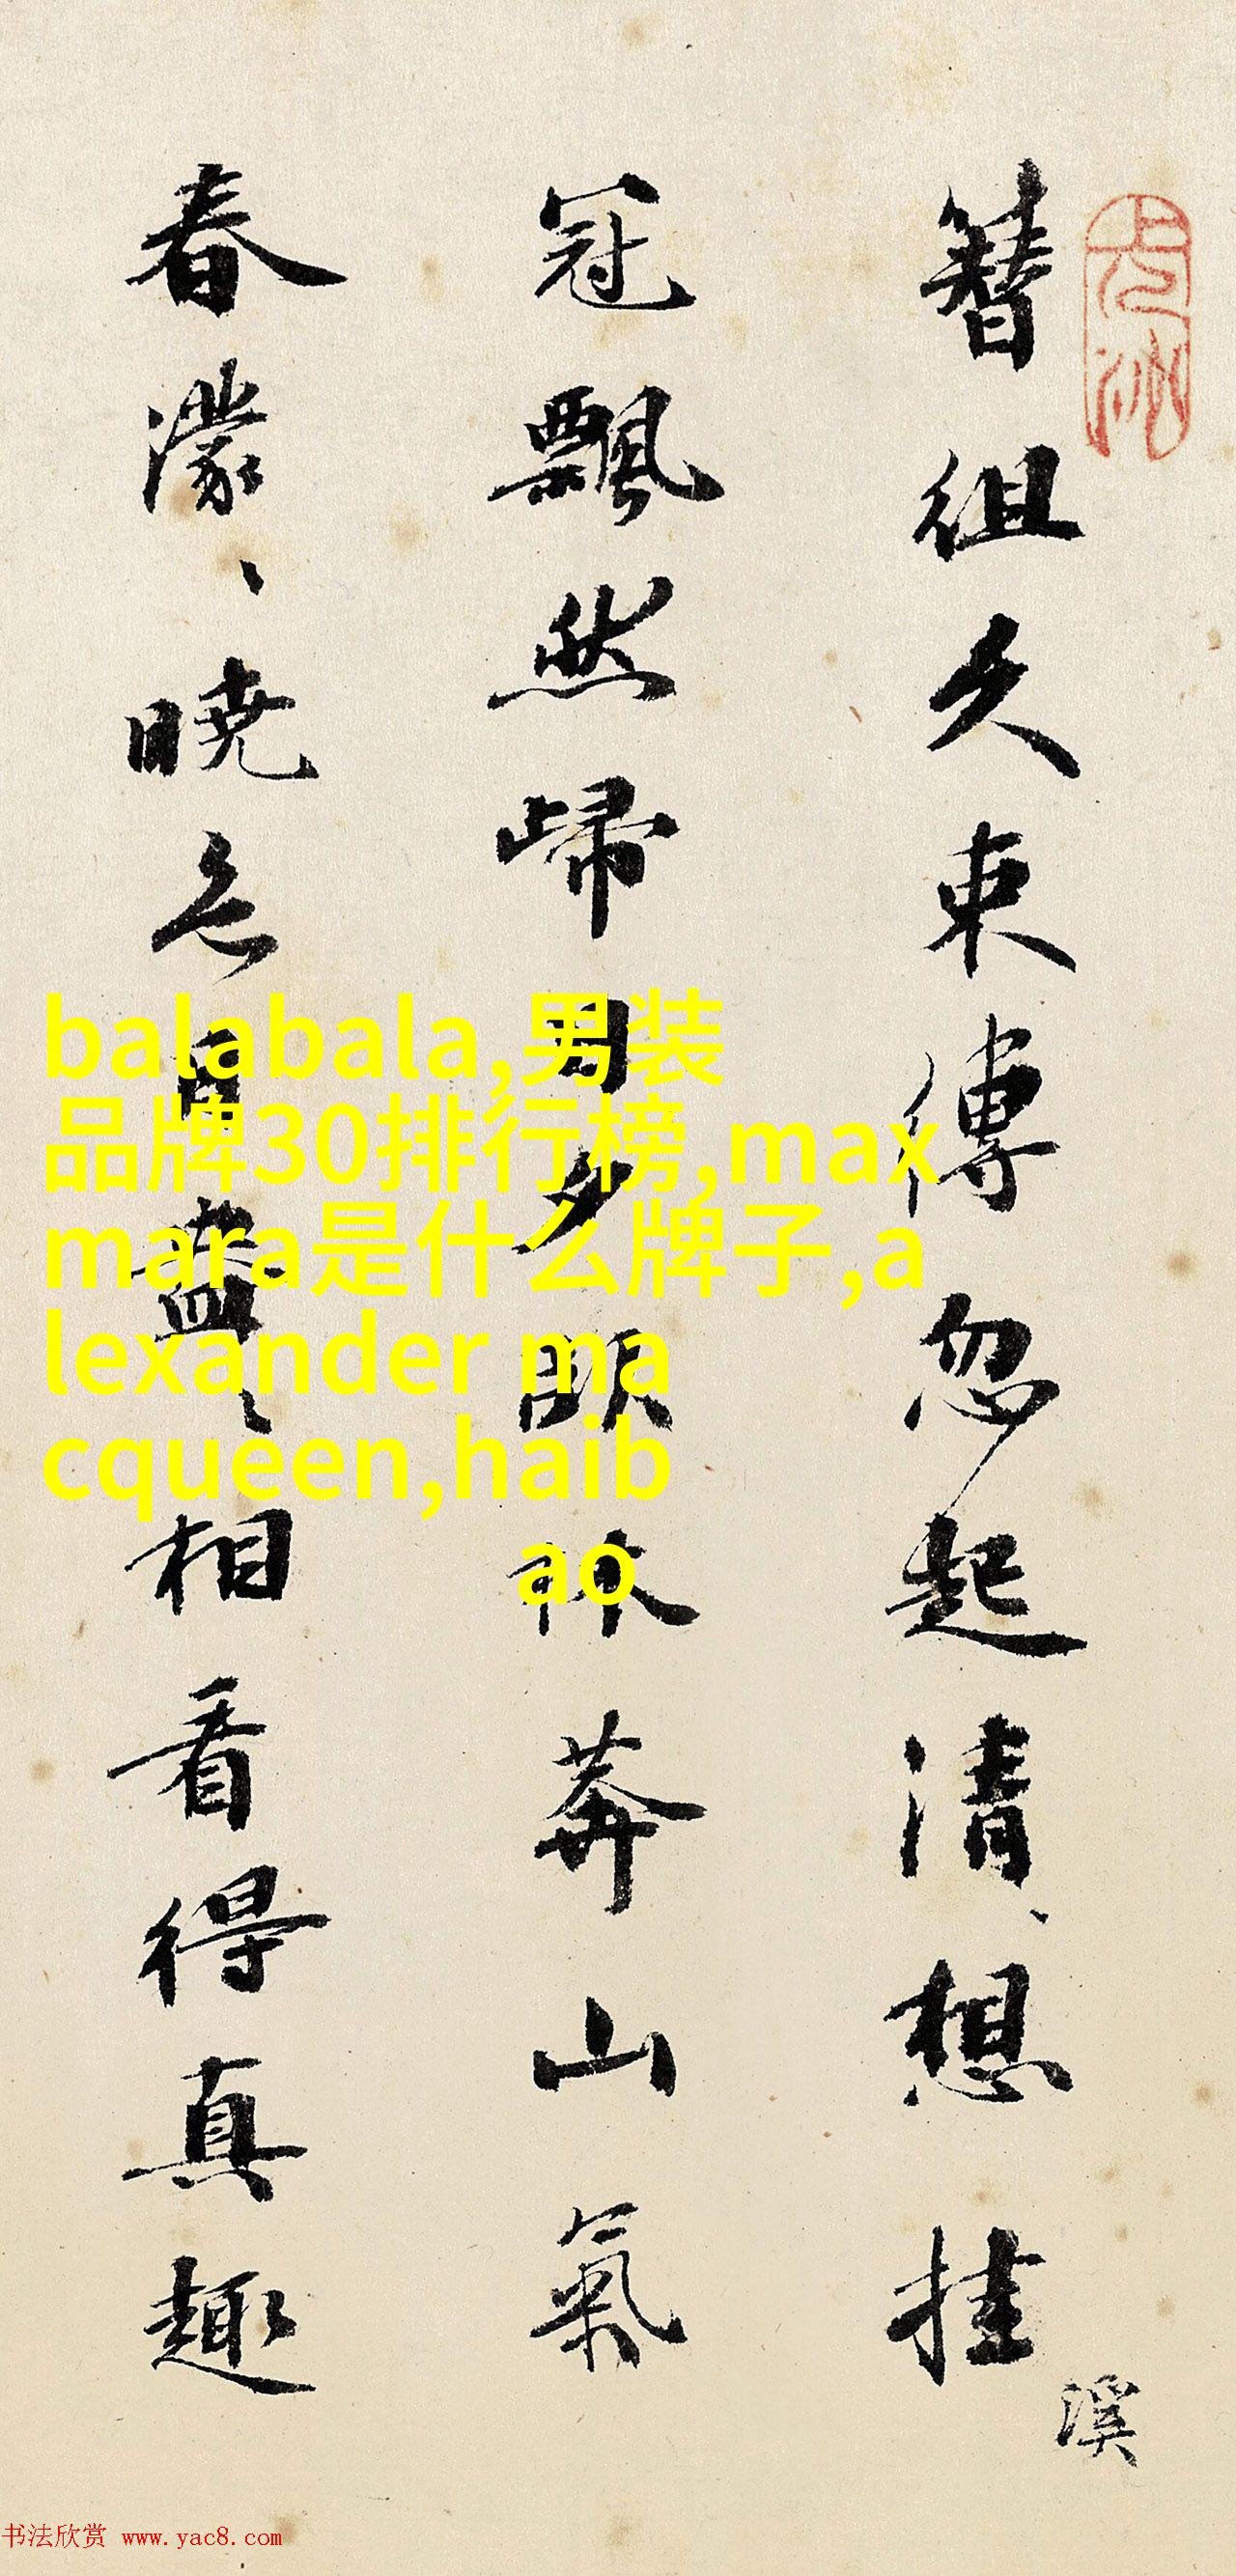 簪組久束縛忽起清、想挂
溪
冠飄然歸日夕臥林莽山氣
春濛、曉色自盎、相看得真趣
balabala,男装
品牌30排行榜,max
mara是什么牌子,a
lexander ma
cqueen,haib
ao
书法欣赏 www.yac8.com